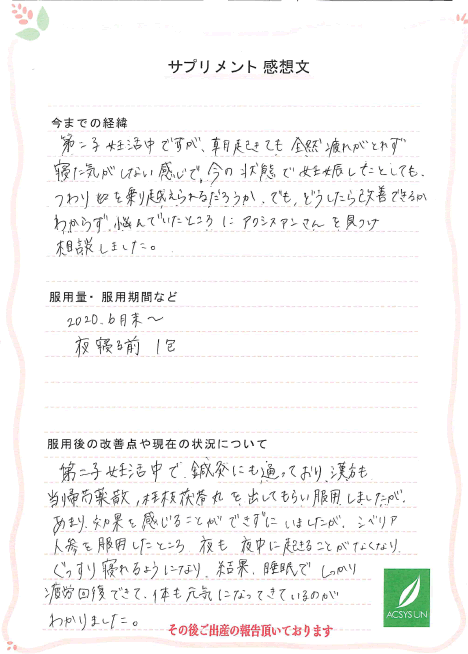 サプリメント 感想文
今までの経緯
第二子妊活中ですが、朝起きても全然疲れがとれず
寝た気がしない感じで、今の状態で妊娠したとしても、
つわり を乗り越えられるだろうか、でも、どうしたら改善できるか
わからず、悩んでいたところにアクシスアンさんを見つけ
相談しました。
服用量・服用期間など
2020.6月末～
夜寝る前 1包
服用後の改善点や現在の状況について
第二子妊活中で、鍼灸にも通っており、漢方も
当帰芍薬散、桂枝茯苓丸を出してもらい服用しましたが、
あまり効果を感じることができずにいましたが、シベリア
人参を服用したところ、夜も夜中に起きることがなくなり、
ぐっすり寝れるようになり、結果、睡眠でしっかり
疲労回復できて、体も元気になってきているのが
わかりました。
ACSYSUN
その後ご出産の報告頂いております